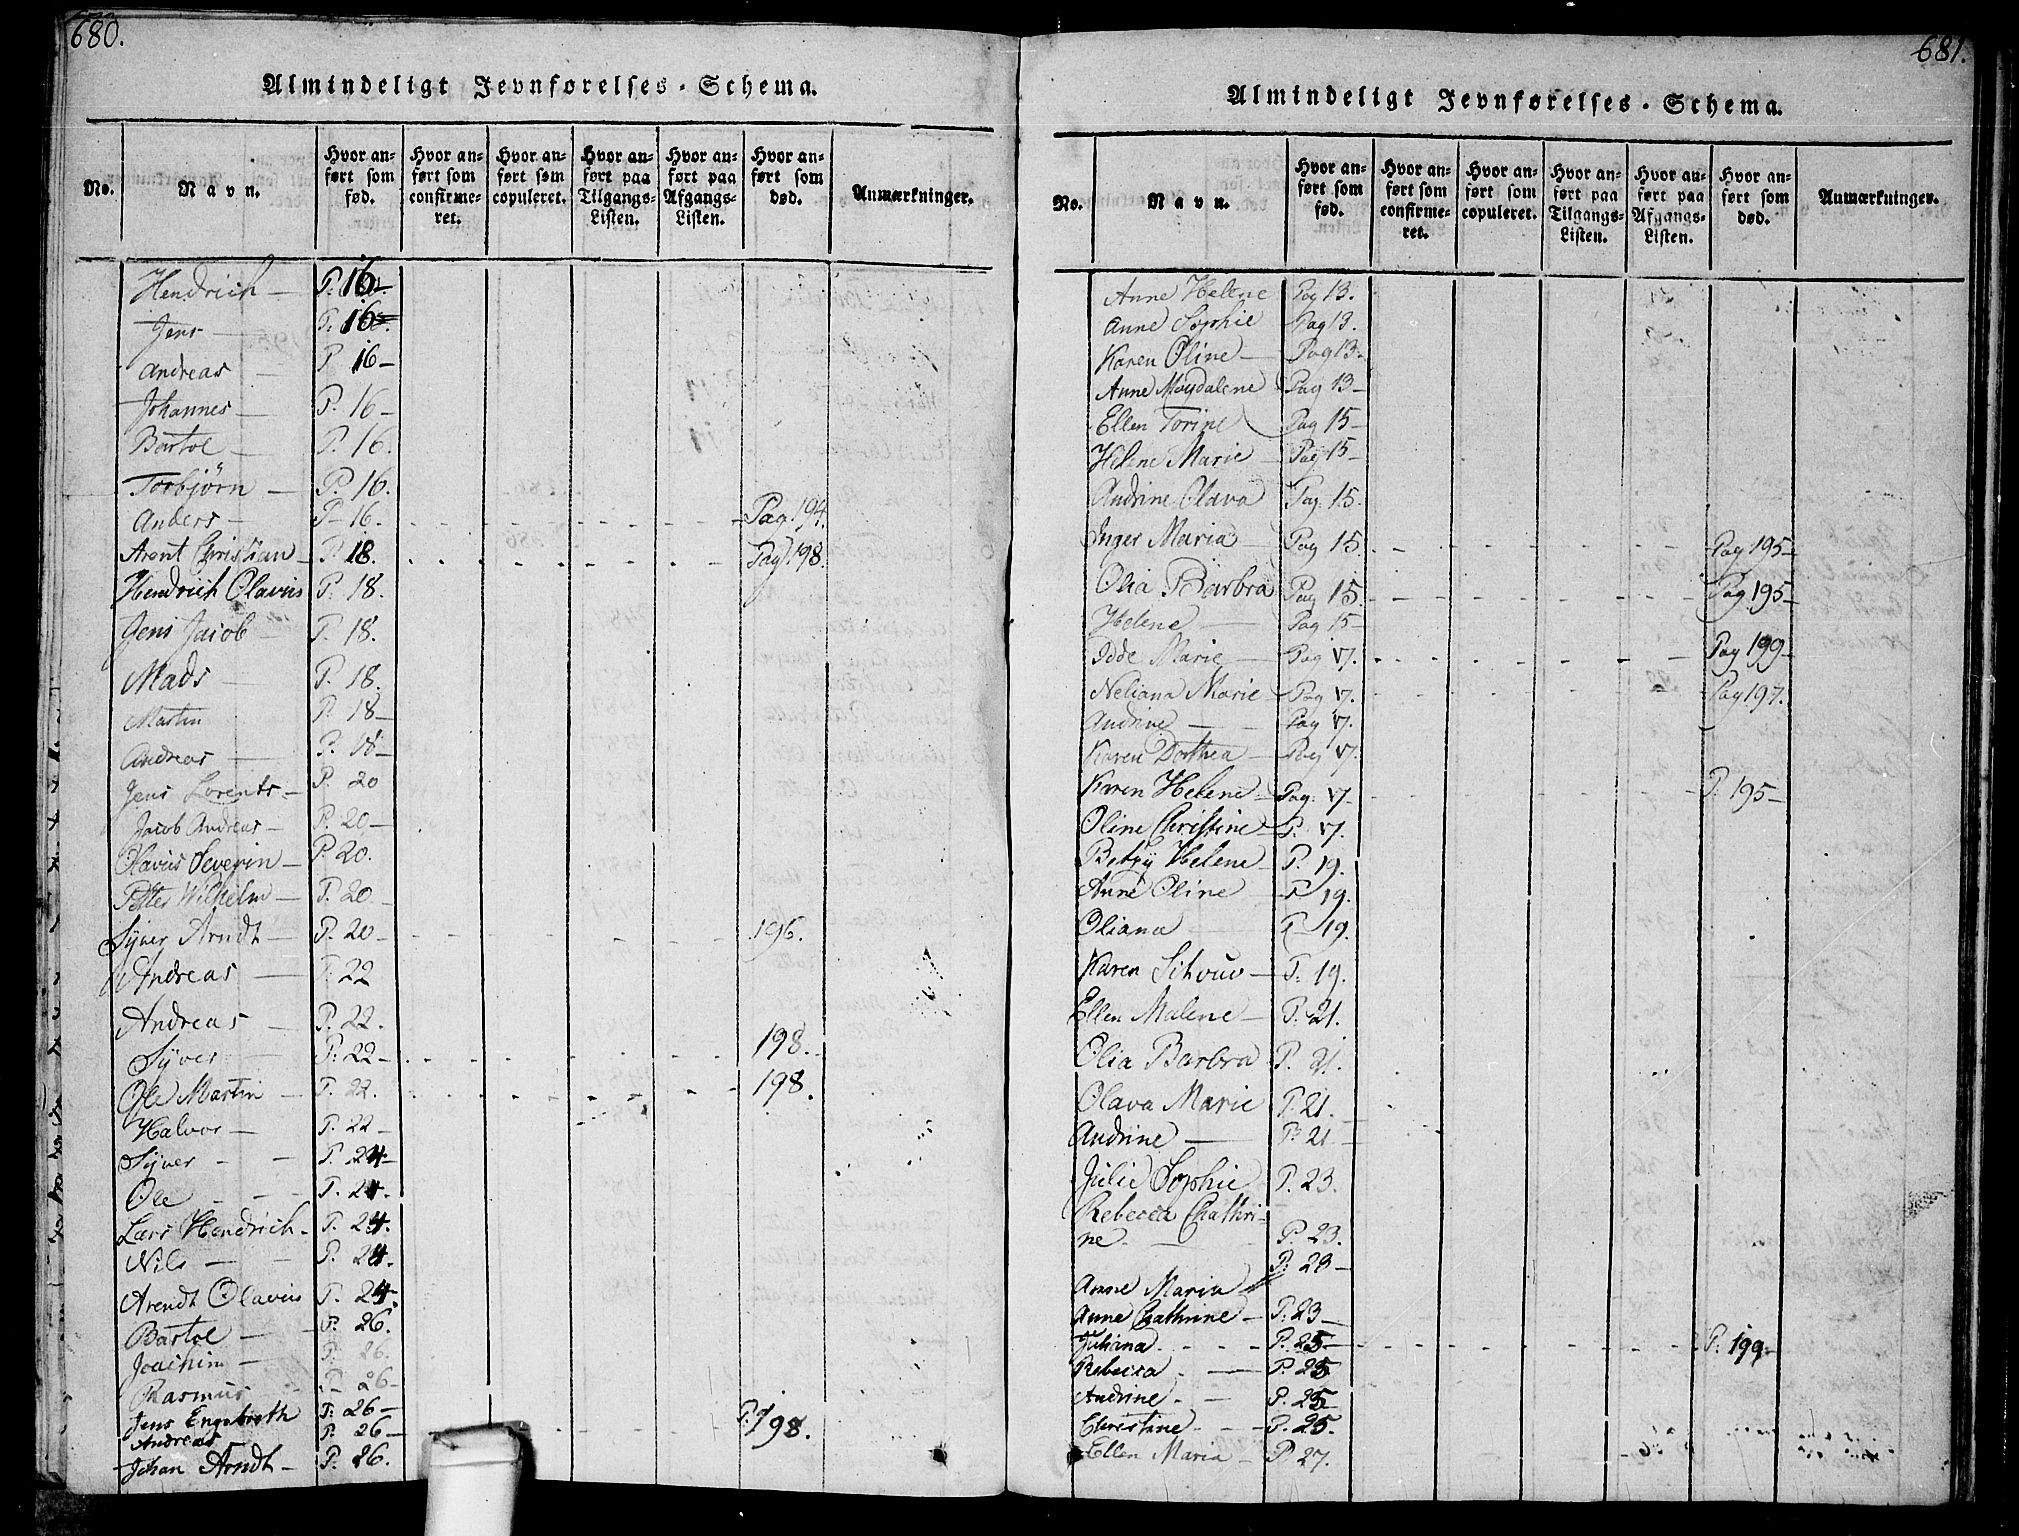 680.
Almindeligt Jevnførelses-Schema.
No. Navn. Hvor anført som fød. Hvor anført som confirmeret. Hvor anført som copuleret. Hvor anført paa Tilgangs-Listen. Hvor anført paa Afgangs-Listen. Hvor anført som død. Anmærkninger.
Hendrich — P. 16
Jens — P. 16
Andreas — P 16 —
Johannes — P. 16 —
Bartol — P. 16.
Torbjörn — P. 16.
Anders — P — 16. Pag. 194.
Arent Christian — P. 18. Pag. 198.
Hendrich Olavus P. 18.
Jens Jacob — P. 18.
Mads — P. 18.
Martin P. 18 —
Andreas — P. 18 —
Jens Lorents — P. 20
Jacob Andreas — P. 20 —
Olavus Severin — P. 20.
Petter Wilhelm — P. 20
Syver Arndt — P. 20 — 196.
Andreas — P. 22
Andreas — P. 22.
Syver — P. 22 — 198.
Ole Martin — P. 22. 198.
Halvor — P. 22 —
Syver — — P. 24 —
Ole — — P. 24.
Lars Hendrich — P. 24.
Nils — — P. 24.
Arendt Olavus P. 24.
Bartol — P. 26.
Joachim — P. 26.
Rasmus P — 26 —
Jens Engebreth P. 26 —
Andreas P. 26 — P. 198.
Johan Arndt — P. 26.
681.
Almindeligt Jevnførelses-Schema.
No. Navn. Hvor anført som fød. Hvor anført som confirmeret. Hvor anført som copuleret. Hvor anført paa Tilgangs-Listen. Hvor anført paa Afgangs-Listen. Hvor anført som død. Anmærkninger.
Anne Helene Pag 13.
Anne Sophie Pag 13.
Karen Oline — Pag 13 —
Anne Magdalene Pag 13 —
Ellen Torine Pag 15 —
Helene Marie — Pag 15 —
Andrine Olava Pag. 15.
Inger Maria Pag 15. Pag 195 —
Olia Barbra Pag 15. Pag 195 —
Helene — Pag 15 —
Idde Marie — Pag 17. Pag 199 —
Neliana Marie Pag 17. Pag 197.
Andrine — Pag 17.
Karen Dorthea — Pag 17.
Karen Helene — Pag. 17 — P. 195 —
Oline Christine — P. 17.
Betzy Helene P. 19.
Anne Oline P 19.
Oliana P 19.
Karen Schouv — P. 19.
Ellen Malene — P. 21.
Olia Barbra P. 21.
Olava Marie P. 21.
Andrine — P. 21 —
Julie Sophie P. 23.
Rebecca Chathri-
ne — P. 23.
Anne Maria P. 23 —
Anne Cathrine — P. 23 —
Juliana P. 25 — P. 199 —
Rebecca — P. 25
Andrine — P. 25
Christine — P. 25.
Ellen Maria — P 27.